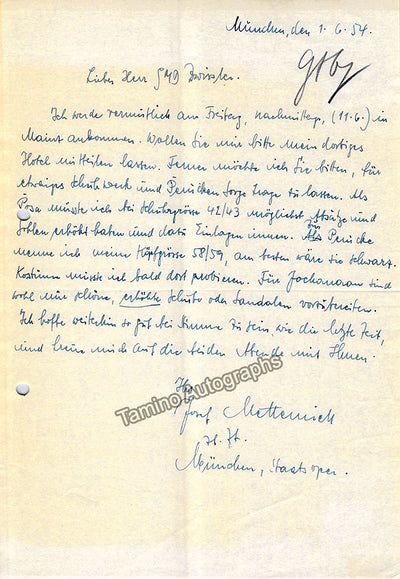 München, den 1.6.54.
Lieber Herr GMD Zwissler.
Ich werde vermutlich am Freitag, nachmittags, (11.6.) in
Mainz ankommen. Wollen Sie mir bitte mein dortiges
Hotel mitteilen lassen. Ferner möchte ich Sie bitten, für
etwaiges Schuhwerk und Perücken Sorge trage zu lassen. Als
Posa müsste ich bei Schuhgrösse 42/43 möglichst Absätze und
Sohlen erhöht haben und dazu Einlagen innen. Perücke
nenne ich meine Kopfgrösse 58/59, am besten wäre sie schwarz.
Kostüme müsste ich bald dort probieren. Für Jochanaan sind
wohl nur schöne, erhöhte Schuhe oder Sandalen vorzubereiten.
Ich hoffe weiterhin so gut bei Stimme zu sein wie die letzte Zeit,
und freue mich auf die beiden Abende mit Ihnen.
Ihr
Josef Metternich
z. Zt.
München, Staatsoper.
Tamino Autographs